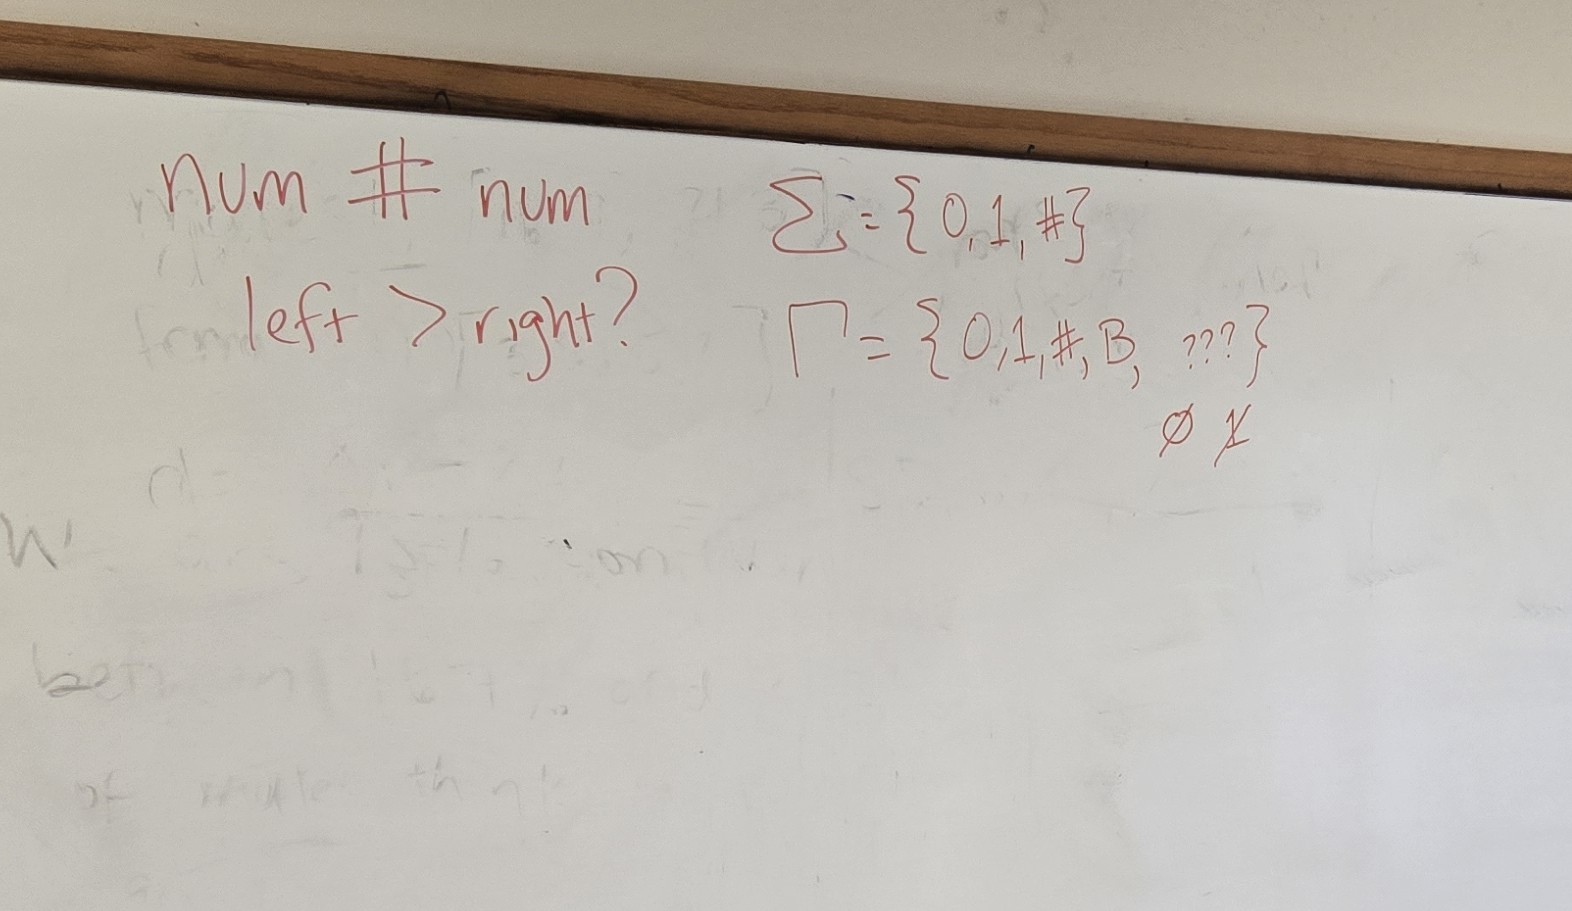 num # num
left > right?
Σ = {0,1,#}
Γ = {0,1,#,B, ???}
0̸ 1̸